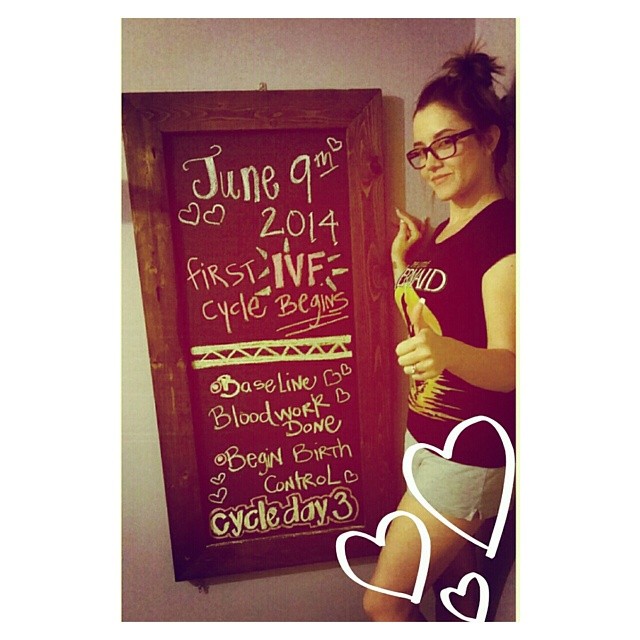 June 9th
2014
first IVF
cycle Begins
Baseline
Bloodwork
Done
Begin Birth
Control
cycle day 3